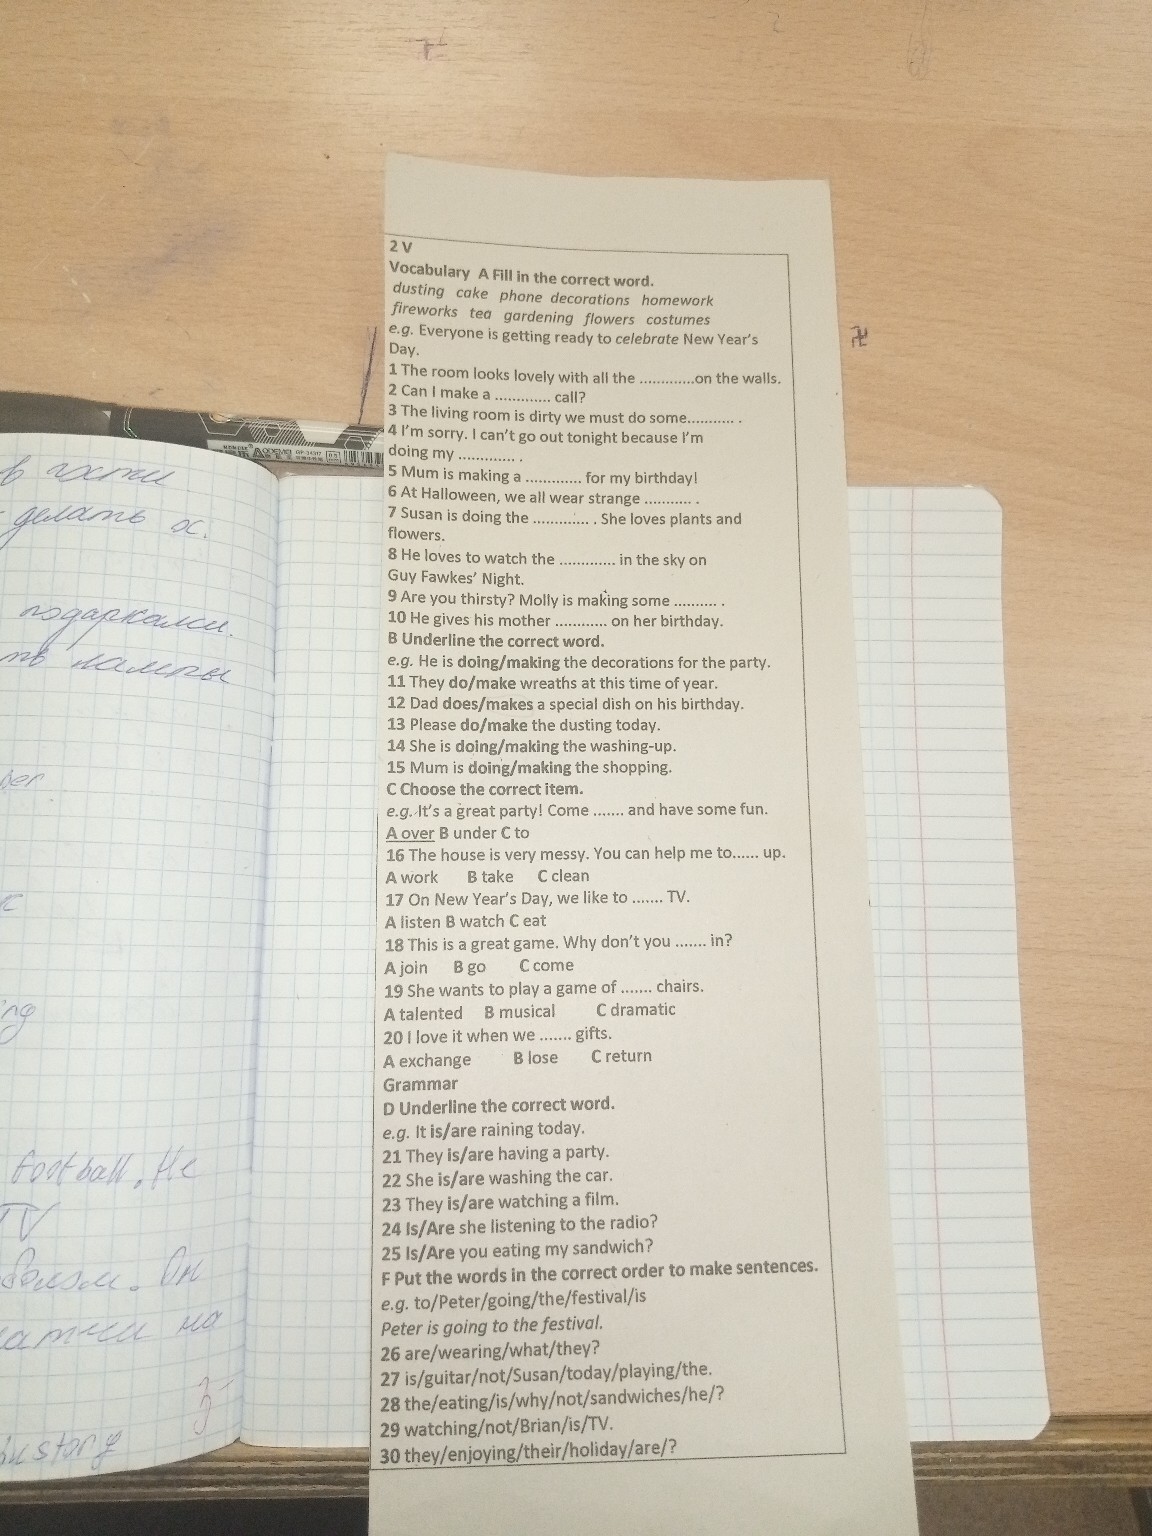 2 V
Vocabulary A Fill in the correct word.
dusting cake phone decorations homework
fireworks tea gardening flowers costumes
e.g. Everyone is getting ready to celebrate New Year's
Day.
1 The room looks lovely with all the .............on the walls.
2 Can I make a ............. call?
3 The living room is dirty we must do some........... .
4 I'm sorry. I can't go out tonight because I'm
doing my ............. .
5 Mum is making a ............. for my birthday!
6 At Halloween, we all wear strange ........... .
7 Susan is doing the ............. . She loves plants and
flowers.
8 He loves to watch the ............. in the sky on
Guy Fawkes' Night.
9 Are you thirsty? Molly is making some .......... .
10 He gives his mother ............ on her birthday.
B Underline the correct word.
e.g. He is doing/making the decorations for the party.
11 They do/make wreaths at this time of year.
12 Dad does/makes a special dish on his birthday.
13 Please do/make the dusting today.
14 She is doing/making the washing-up.
15 Mum is doing/making the shopping.
C Choose the correct item.
e.g. It's a great party! Come ....... and have some fun.
A over B under C to
16 The house is very messy. You can help me to...... up.
A work B take C clean
17 On New Year's Day, we like to ....... TV.
A listen B watch C eat
18 This is a great game. Why don't you ....... in?
A join B go C come
19 She wants to play a game of ....... chairs.
A talented B musical C dramatic
20 I love it when we ....... gifts.
A exchange B lose C return
Grammar
D Underline the correct word.
e.g. It is/are raining today.
21 They is/are having a party.
22 She is/are washing the car.
23 They is/are watching a film.
24 Is/Are she listening to the radio?
25 Is/Are you eating my sandwich?
F Put the words in the correct order to make sentences.
e.g. to/Peter/going/the/festival/is
Peter is going to the festival.
26 are/wearing/what/they?
27 is/guitar/not/Susan/today/playing/the.
28 the/eating/is/why/not/sandwiches/he/?
29 watching/not/Brian/is/TV.
30 they/enjoying/their/holiday/are/?
в гости
делать
подарками.
лампы
football. He
TV
Он
на
story